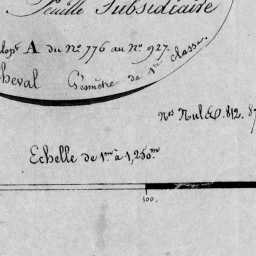 Feuille Subsidiaire
A du Nº 776 au Nº 927.
cheval Géomètre de 1re classe.
Nos Nul 812.
Echelle de 1m à 1,250m
100.